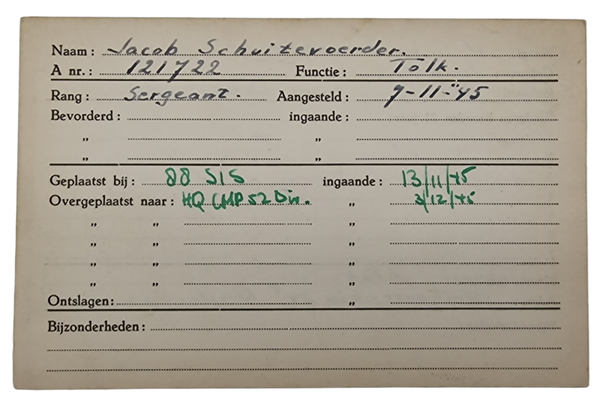 Naam: Jacob Schuitevoerder.
A nr.: 121722 Functie: Tolk.
Rang: Sergeant. Aangesteld: 9-11-'45
Bevorderd: ingaande:
„ „
„ „
Geplaatst bij: 88 SIS ingaande: 13/11/45
Overgeplaatst naar: HQ CMP 52 Div. „ 3/12/45
„ „
„ „
„ „
Ontslagen: „
Bijzonderheden: